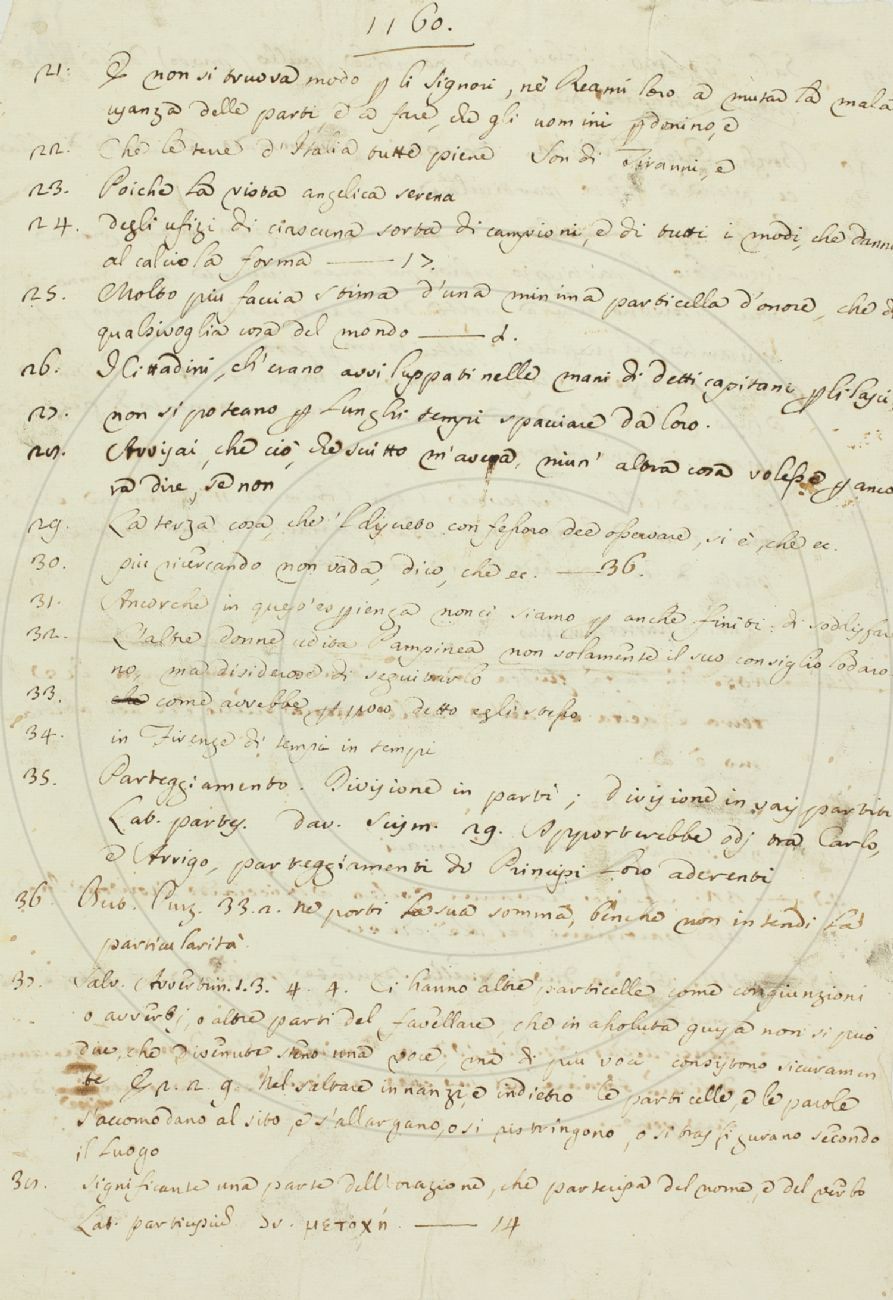 1160.
21. E non si truova modo p li Signori, nè Reami loro a mutar la mala
usanza delle parti, e a fare, che gli uomini pdonino, e
22. Chè le terre d'Italia tutte piene Son di Tiranni, e
23. Poichè la vista angelica serena
24. Degli ufizi di ciascuna sorta di campioni, e di tutti i modi, che danno
al calcio la forma —— 17.
25. Molto più faccia stima d'una minima particella d'onore, che di
qualsivoglia cosa del mondo —— d.
26. I Cittadini, ch'erano avviluppati nelle mani di detti capitani p li
27. non si poteano p lunghi tempi spacciare da loro.
28. Avvisai, che ciò, che scritto m'aveva, niun' altra cosa volesse p anco
ra dire, se non
29. La terza cosa, che 'l discreto confessoro dee osservare, si è, che ec.
30. più ricercando non vada, dico, che ec. —— 36.
31. Ancorchè in quest'espienza non ci siamo p anche finiti di soddisfar
32. L'altre donne udita Pampinea non solamente il suo consiglio lodaro
no, ma disiderose di seguitarlo
33. che come avrebbe detto egli stesso
34. in Firenze di tempi in tempi
35. Parteggiamento. Divisione in parti; divisione in varj partiti
Lat. partes. Dav. Scism. 29. Apporterebbe odj tra Carlo,
e Arrigo, parteggiamenti di Principi loro aderenti
36 But. Purg. 33.2. ne porti la sua somma, benchè non intendi la
particularità.
37. Salv. Avvertim. 1.3. 4. 4. Ci hanno altre particelle come congiunzioni
o avverbj, o altre parti del favellare, che in assoluta guisa non si può
dire, che divenute sieno una voce, nè di più voci consistono sicuramen
te E 2. 2. 9. Nel saltare innanzi, e indietro le particelle, e le parole
s'accomodano al sito, e s'allargano, o si ristringono, o si trasfigurano secondo
il luogo
38. significante una parte dell'orazione, che partecipa del nome, e del verbo
Lat. participiū Gr. μετοχή. —— 14